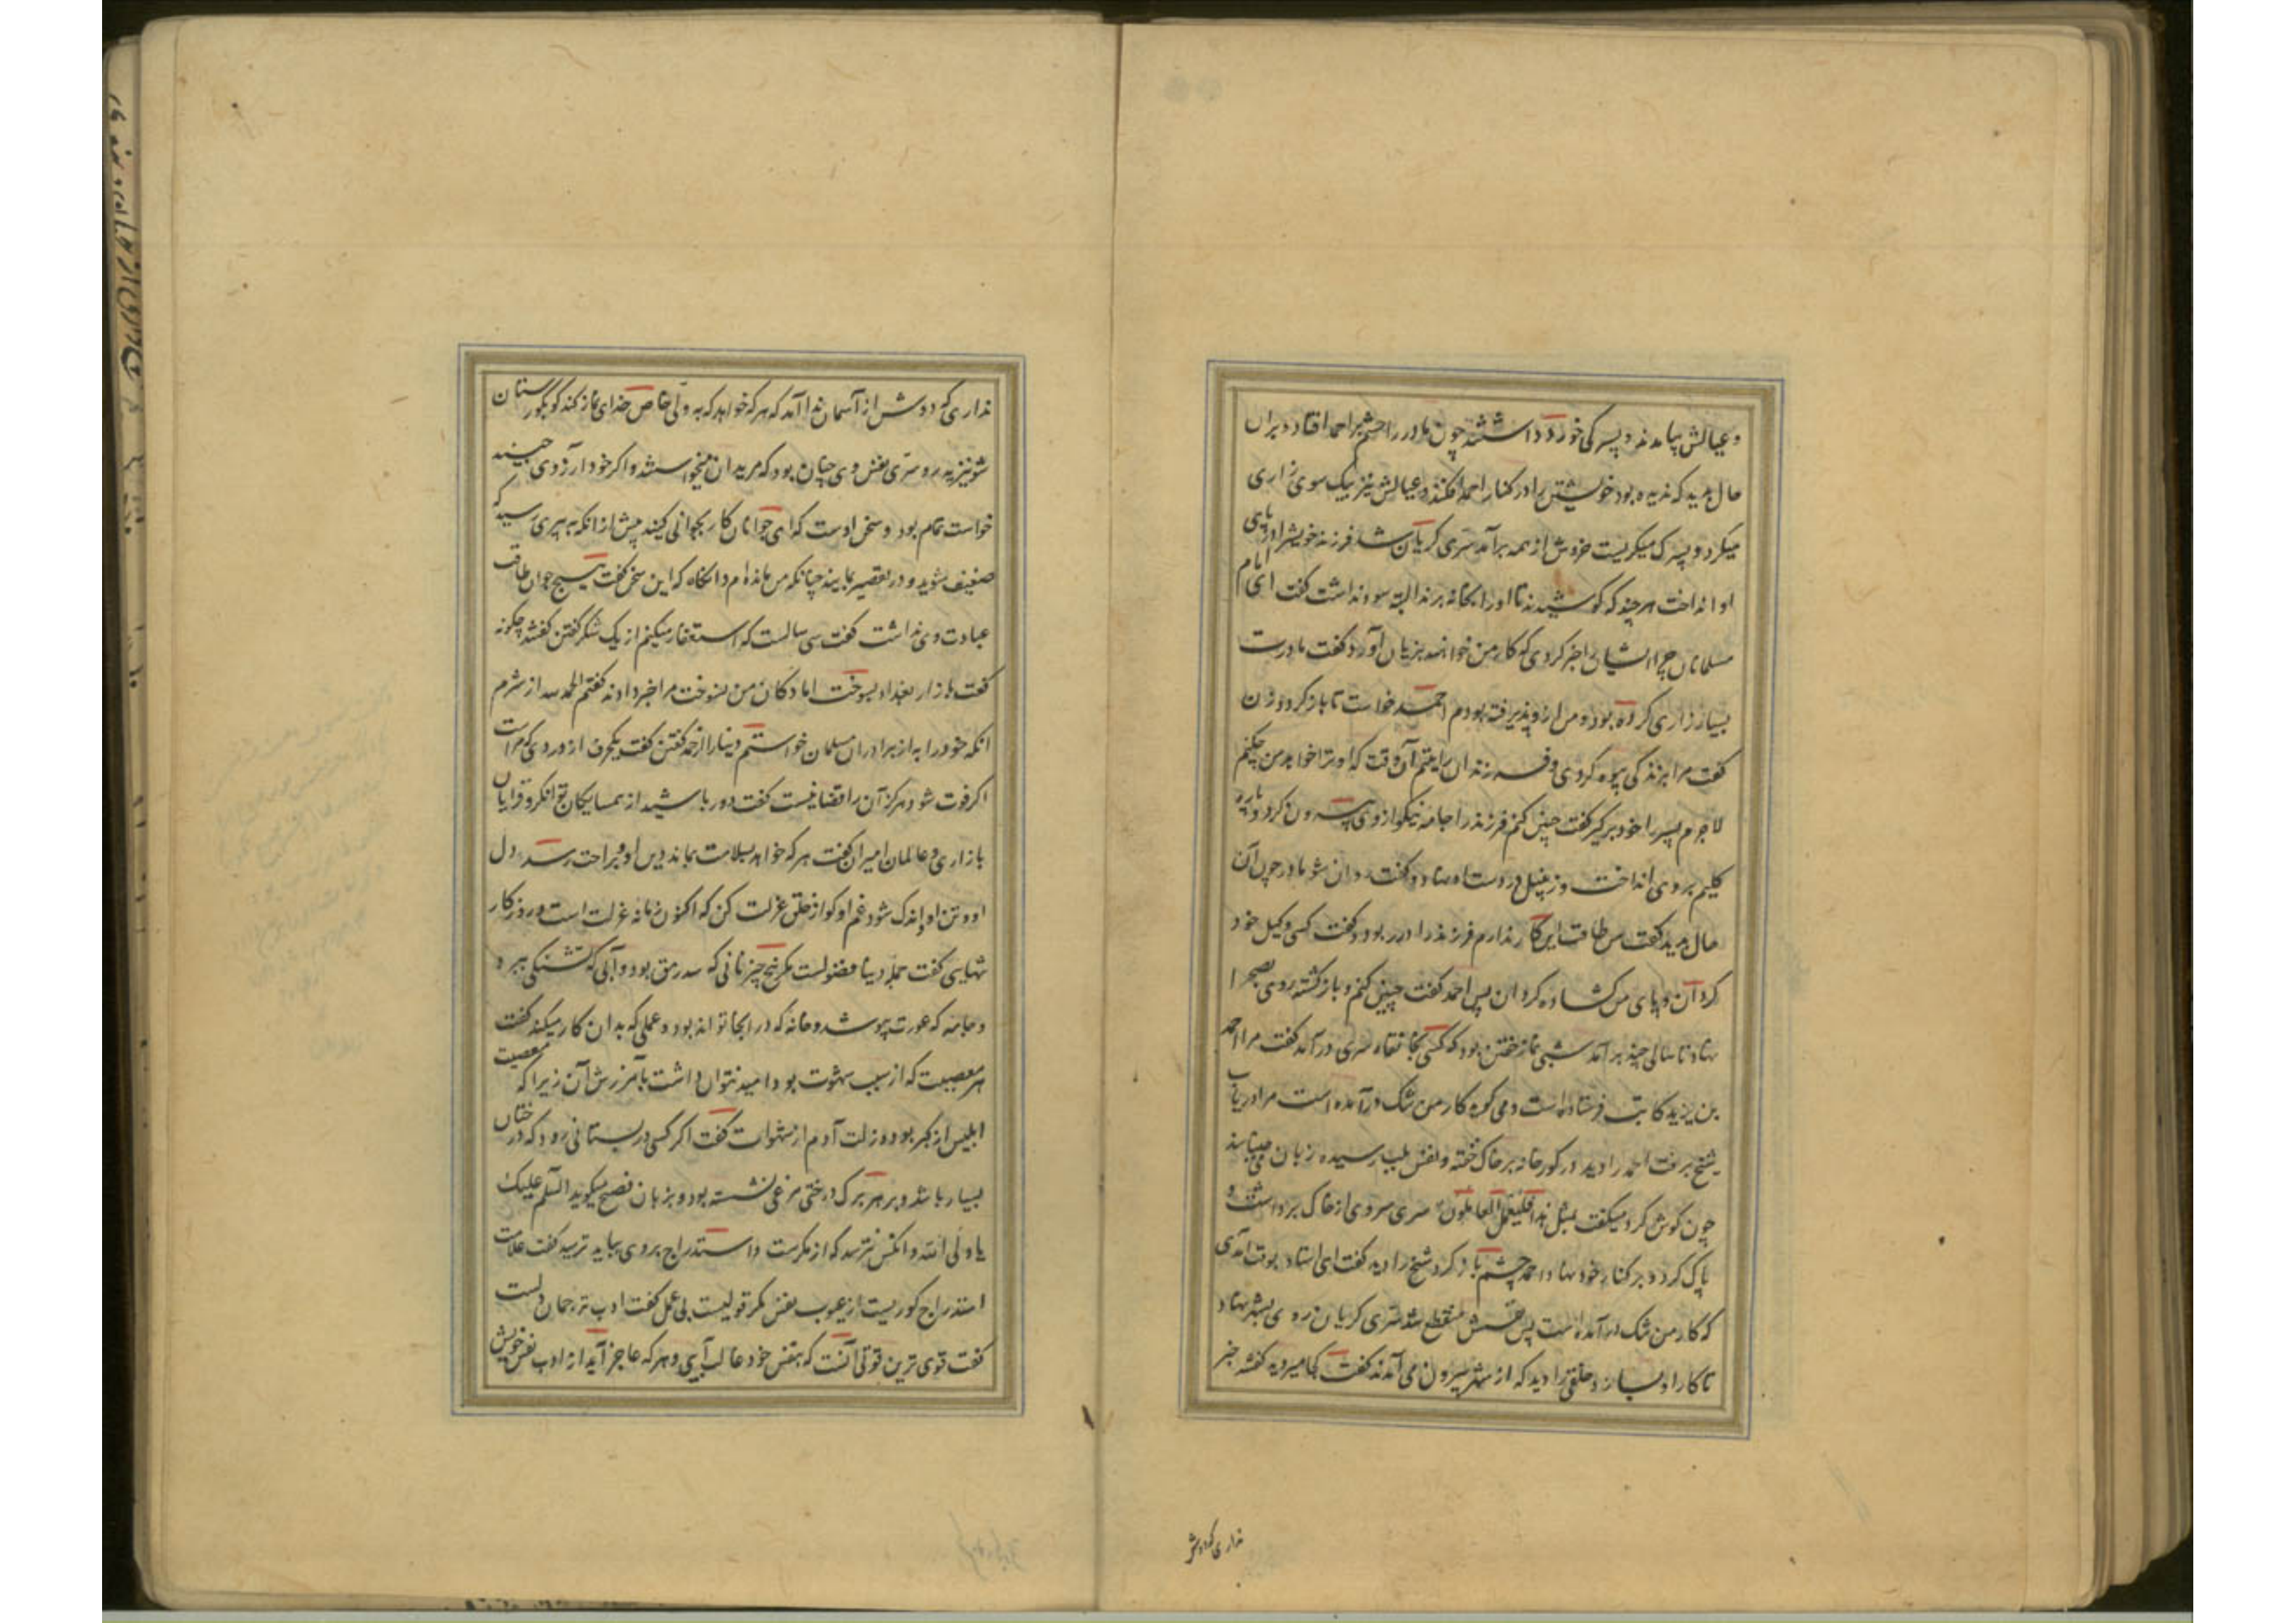 و عیالش بیامدند و پسرکی خورد داشتند چون مادر را چشم بر احمد افتاد و بران
حال بدید که ندیده بود خویشتن را در کنار احمد افکند و عیالش نیز یک سوی زاری
میکرد و پسرک میکریست خروش از همه برآمد سری کریان شد فرزند خویش را در پای
او انداخت هر چند که کوشیدند تا او را بخانه برند البته سود نداشت کفت ای امام
مسلمانان چرا ایشان را خبر کردی که کار من خواهند بزیان آورد کفت مادرت
بسیار زاری کرده بود و من ازو پذیرفته بودم احمد خواست تا باز کردد زن
کفت مرا بزندکی بیوه کردی و فرزندان را یتیم آن وقت که او ترا خواهد من چکنم
لاجرم پسر را خود برکیر کفت چنین کنم فرزند را جامه نیکو از وی بیرون کرد و پاره
کلیم بر وی انداخت و زنبیل در دست او نهاد و کفت روان شو مادر چون آن
حال بدید کفت من طاقت این کار ندارم فرزند را در ربود و کفت کسی وکیل خود
کردان و پای من کشاده کردان پس احمد کفت چنین کنم و باز کشته روی بصحرا
نهاد تا سالی چند برآمد شبی نماز خفتن بود که کسی بخانقاه سری درآمد کفت مرا احمد
بن یزید کاتب فرستاده است و می کوید کار من تنک درآمده است مرا دریاب
شیخ برفت احمد را دید در کورخانه بر خاک خفته و نفس بلب رسیده زبان می جنباند
چون کوش کرد میکفت لمثل هذا فلیعمل العاملون سری سر وی از خاک برداشت و
پاک کرد و بر کنار خود نهاد احمد چشم باز کرد شیخ را دید کفت ای استاد بوقت آمدی
که کار من تنک درآمده است پس نفسش منقطع شد سری کریان روی بشهر نهاد
تا کار او بسازد خلقی را دید که از شهر بیرون می آمدند کفت کجا میروید کفتند خبر
نداری که دوش
نداری که دوش از آسمان ندا آمد که هر که خواهد که به ولی خاص خدای نماز کند کو بکورستان
شونیزیه رو سری نفس وی چنان بود که مریدان میخواستند و اکر خود ار آزوی جنید
خواست تمام بود و سخن اوست که ای جوانان کار بجوانی کنید پیش از انکه به پیری رسید که
ضعیف شوید و در تقصیر بمانید چنانکه من مانده ام و انکاه که این سخن کفت هیچ جوان طاقت
عبادت وی نداشت کفت سی سالست که استغفار میکنم از یک شکر کفتن کفتند چکونه
کفت بازار بغداد بسوخت اما دکان من نسوخت مرا خبر دادند کفتم الحمد لله از شرم
انکه خود را به از برادران مسلمان خواستم دینار از حمد کفتن کفت یکحرف از وردی که مراست
اکر فوت شود هرکز آن را قضا نیست کفت دور باشید از همسایکان توانکر و قرایان
بازاری و عالمان امیران کفت هر که خواهد بسلامت بماند دین او و براحت رسد دل
او و تن او و اندک شود غم او کو از خلق عزلت کن که اکنون زمانه عزلت است و روزکار
تنهایی کفت جمله دنیا فضولست مکر پنج چیز نانی که سد رمق بود و آبی که تشنکی ببرد
و جامه که عورت بپوشد و خانه که در انجا تواند بود و عملی که بدان کار میکند کفت
هر معصیت که از سبب شهوت بود امید نتوان داشت بآمرزش آن زیرا که معصیت
ابلیس از کبر بود و زلت آدم از شهوات کفت اکر کسی در بستانی رود که درختان
بسیار باشد و بر هر برک درختی مرغی نشسته بود و بزبان فصیح میکوید السلم علیک
یا ولی الله و انکس نترسد که از مکرست و استدراج بر وی بباید ترسید کفت علامت
استدراج کوریست از عیوب نفس مکر قولیست بی عمل کفت ادب ترجمان دلست
کفت قوی ترین قوتی آنست که بنفس خود غالب آیی و هر که عاجز آید از ادب نفس خویش